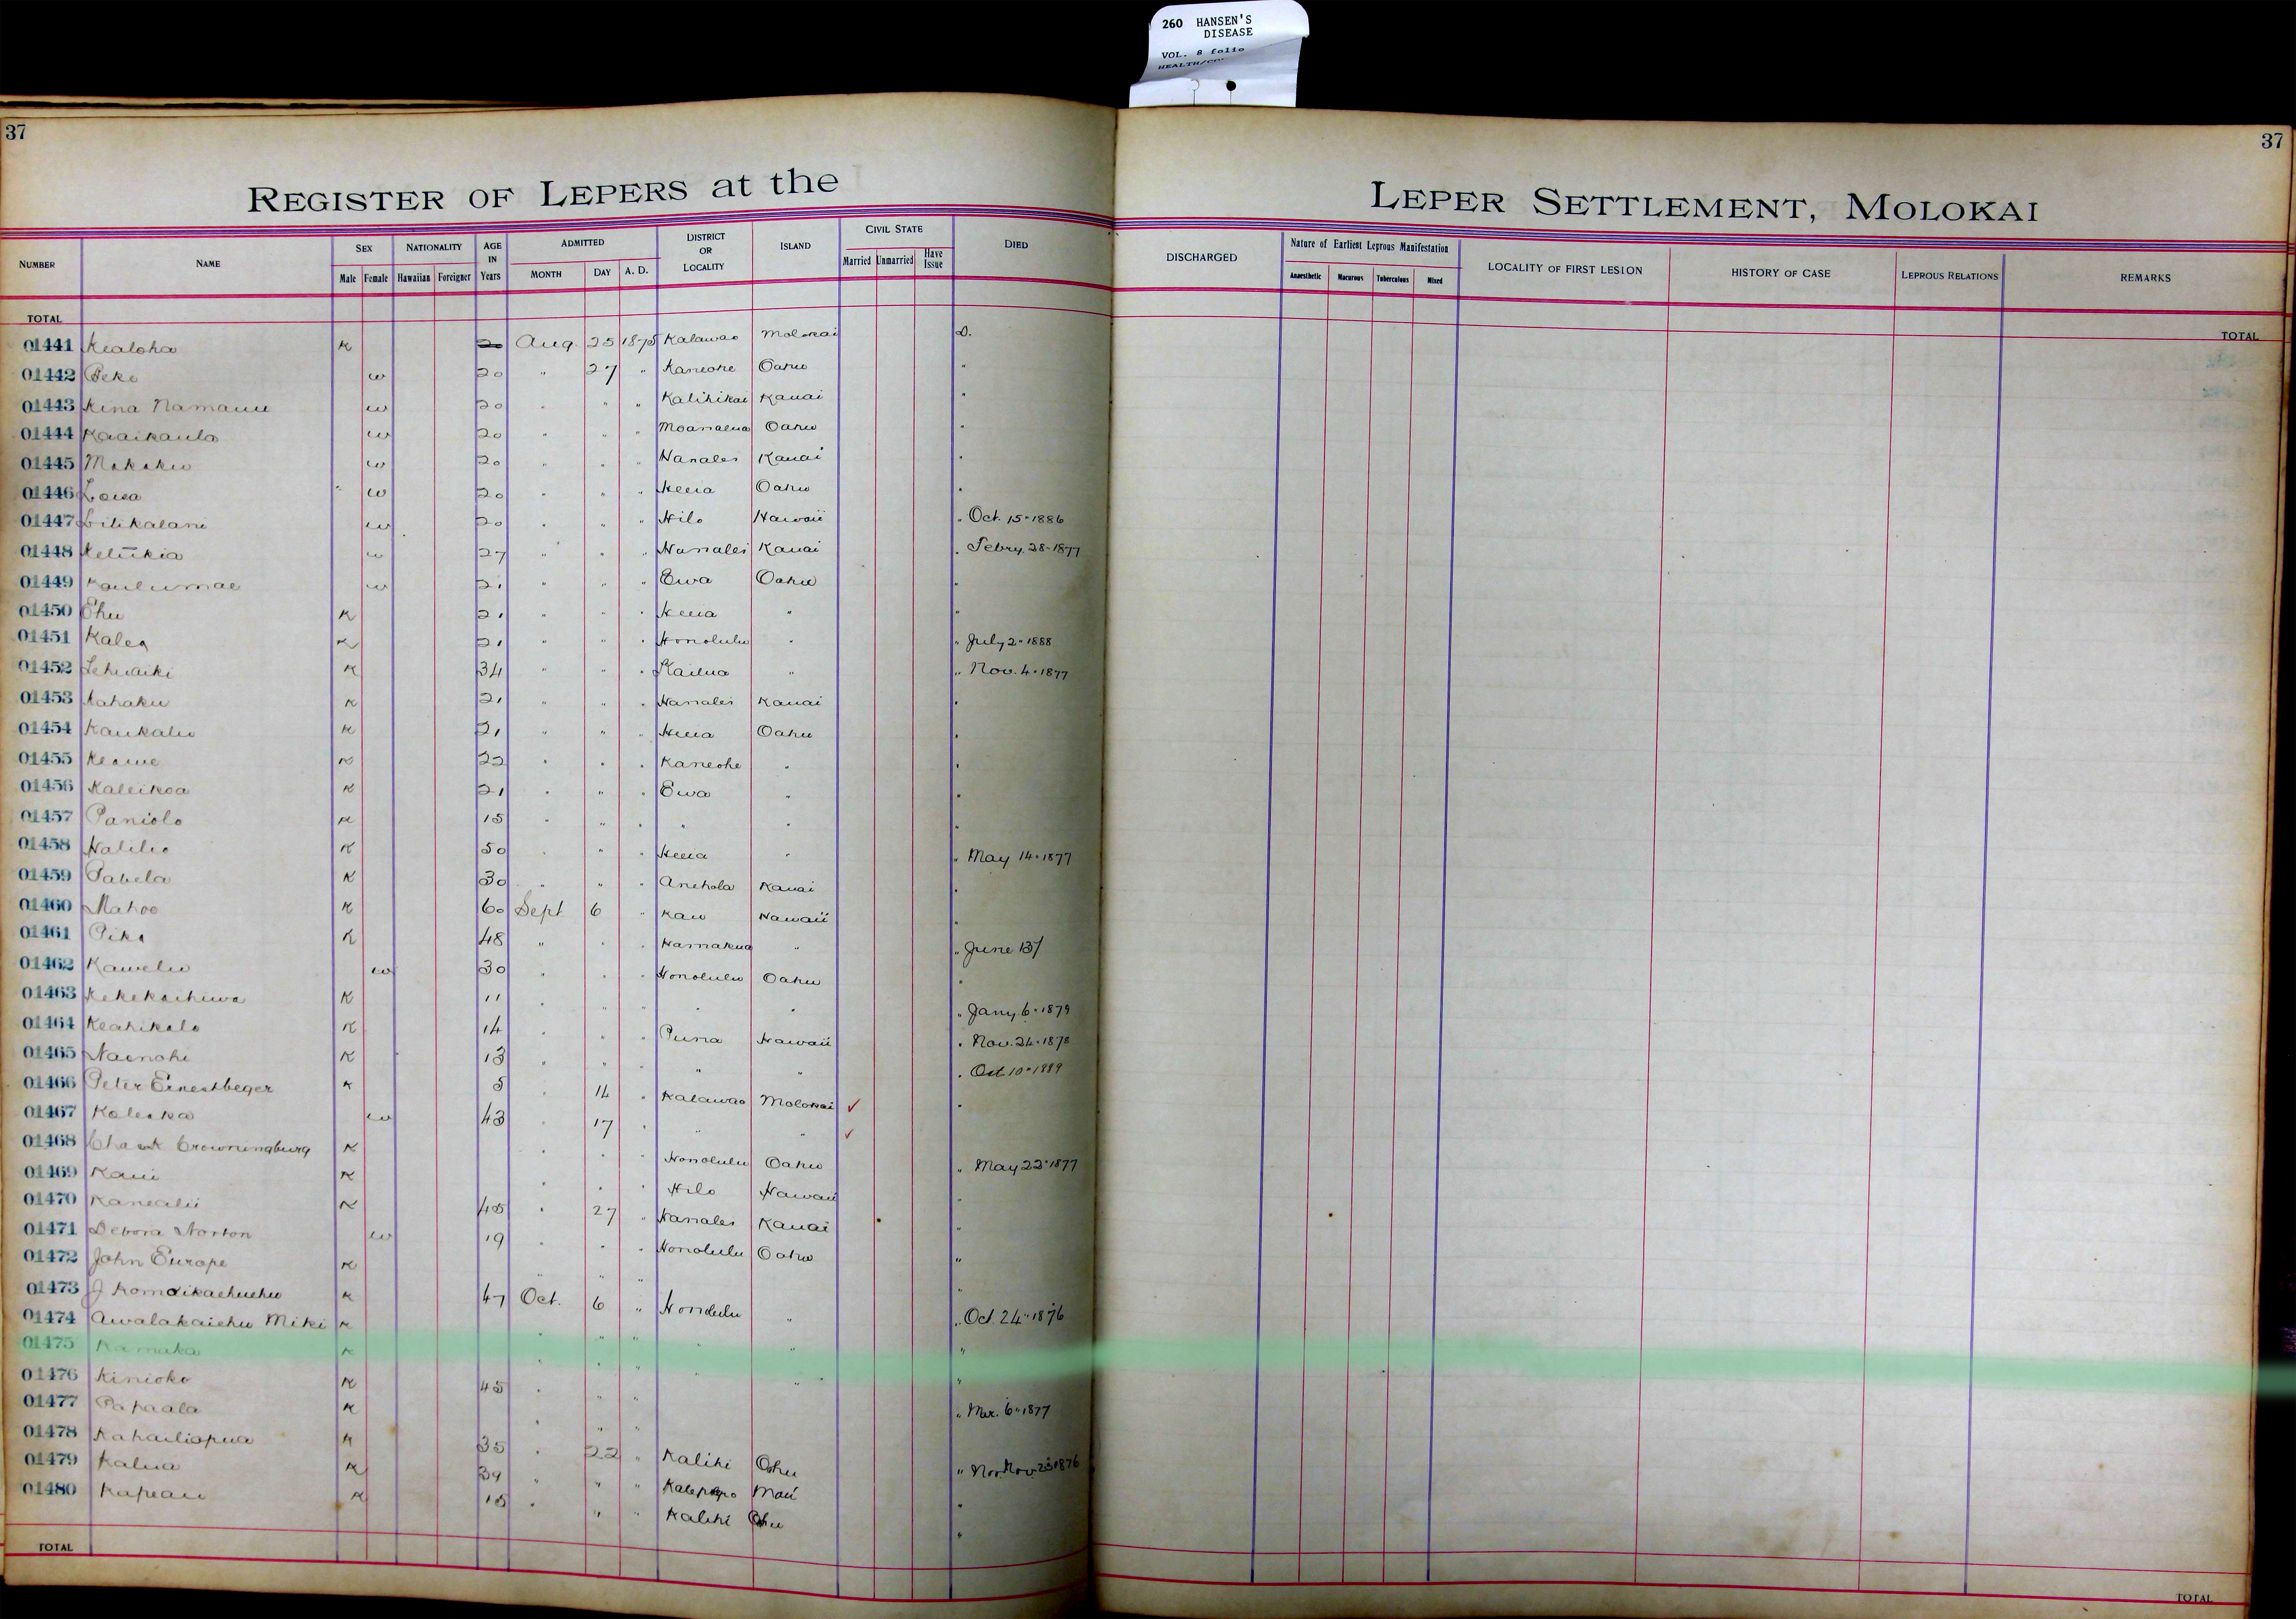 260 HANSEN'S
DISEASE
VOL. 8 folio
37
37
REGISTER OF LEPERS at the LEPER SETTLEMENT, MOLOKAI
NUMBER NAME SEX Male Female NATIONALITY Hawaiian Foreigner AGE IN Years ADMITTED MONTH DAY A. D. DISTRICT OR LOCALITY ISLAND CIVIL STATE Married Unmarried Have Issue DIED DISCHARGED Nature of Earliest Leprous Manifestation Anaesthetic Macurous Tuberculous Mixed LOCALITY OF FIRST LESION HISTORY OF CASE LEPROUS RELATIONS REMARKS
TOTAL TOTAL
01441 Kealoha K 20 Aug. 25 1875 Kalawao Molokai D.
01442 Peke w 20 " 27 " Kaneohe Oahu "
01443 Kina Namauu w 20 " " " Kalihikai Kauai "
01444 Kaaikaula w 20 " " " Moanalua Oahu "
01445 w 20 " " " Hanalei Kauai "
01446 Loisa w 20 " " " Heeia Oahu "
01447 Lilikalani w 20 " " " Hilo Hawaii " Oct. 15-1886
01448 Keliikia w 27 " " " Hanalei Kauai " Febry. 28-1877
01449 Kaulumae w 21 " " " Ewa Oahu "
01450 Ehu K 21 " " " Heeia " "
01451 Kalea K 21 " " " Honolulu " " July 2-1888
01452 Lehuaiki K 34 " " " Kailua " " Nov. 4-1877
01453 Kahaku K 21 " " " Hanalei Kauai "
01454 Kaukaliu K 21 " " " Heeia Oahu "
01455 Keawe K 22 " " " Kaneohe " "
01456 Kaleikoa K 21 " " " Ewa " "
01457 Paniolo K 15 " " " " " "
01458 Halilio K 50 " " " Heeia " " May 14-1877
01459 Pabela K 30 " " " Anehola Kauai "
01460 Mahoe K 60 Sept 6 " Kau Hawaii "
01461 Pika K 48 " " " Hamakua " " June 13/
01462 Kawelu w 30 " " " Honolulu Oahu "
01463 Kekekachiwa K 11 " " " " " " Jany. 6-1879
01464 Keahikolo K 14 " " " Puna Hawaii " Nov. 24-1878
01465 Nainohi K 13 " " " " " " Oct 10-1889
01466 Peter Ernestbeger K 5 " 14 " Kalawao Molokai ✓ "
01467 Kaleoka w 43 " 17 " " " ✓
01468 Crowningburg K " " " Honolulu Oahu " May 22-1877
01469 Kaui K " " " Hilo Hawaii "
01470 Kanealii K 45 " 27 " Hanalei Kauai "
01471 Debora Norton w 19 " " " Honolulu Oahu "
01472 John Europe K " " " "
01473 J K 47 Oct. 6 " Honolulu " " Oct. 24-1876
01474 Awalakaiehu Miki K " " " " " "
01475 Kamaka K " " " " " "
01476 Kinioko K 45 " " "
01477 Papaala K " " " Mar. 6-1877
01478 Kahailiopua K 35 " 22 " Kalihi Oahu " Nov. 23-1876
01479 Kalua K 39 " " " Kalepolepo Maui "
01480 Kapeau K 15 " " " Kalihi Oahu "
TOTAL TOTAL